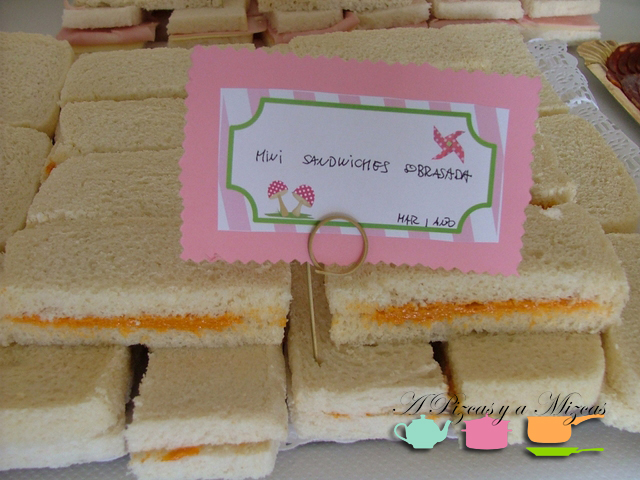 MINI SANDWICHES SOBRASADA
A Pizcas y a Mizcas